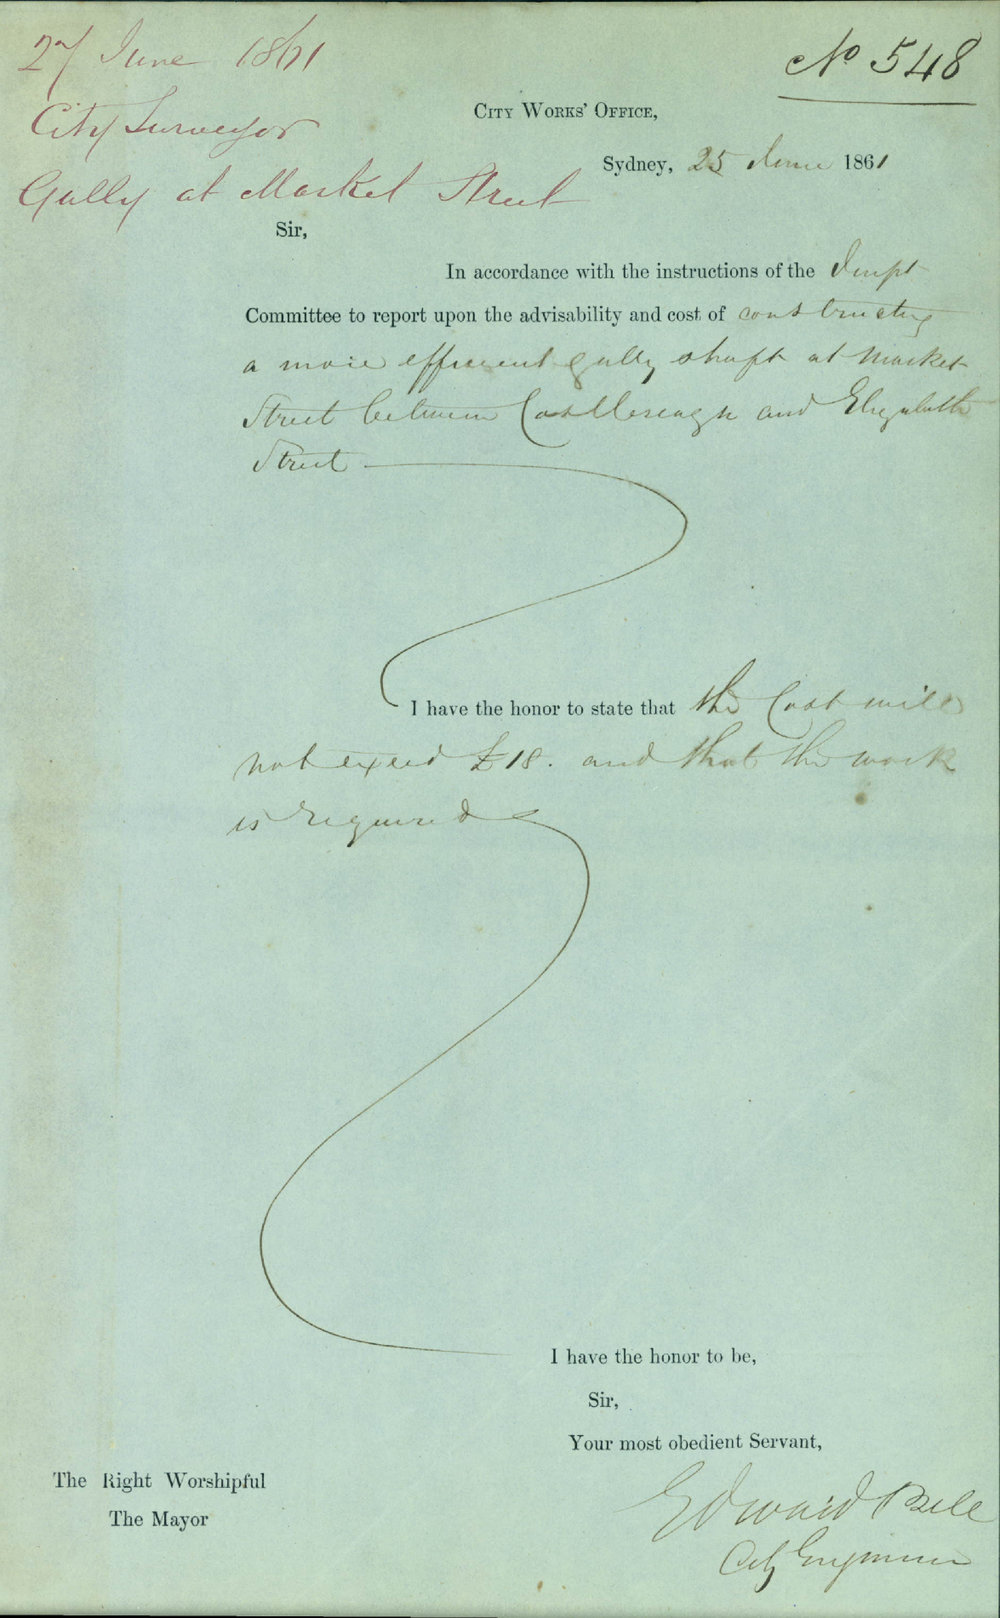 27 June 1861
No 548
City Surveyor
City Works' Office,
Sydney, 25 June 1861
Gully at Market Street
Sir,
In accordance with the instructions of the Impt
Committee to report upon the advisability and cost of constructing
a more efficient gully shaft at Market
Street between Castlereagh and Elizabeth
Street
I have the honor to state that the Cost will
not exceed £18. and that the work
is required
I have the honor to be,
Sir,
Your most obedient Servant,
The Right Worshipful
The Mayor
Edward Bell
City Engineer